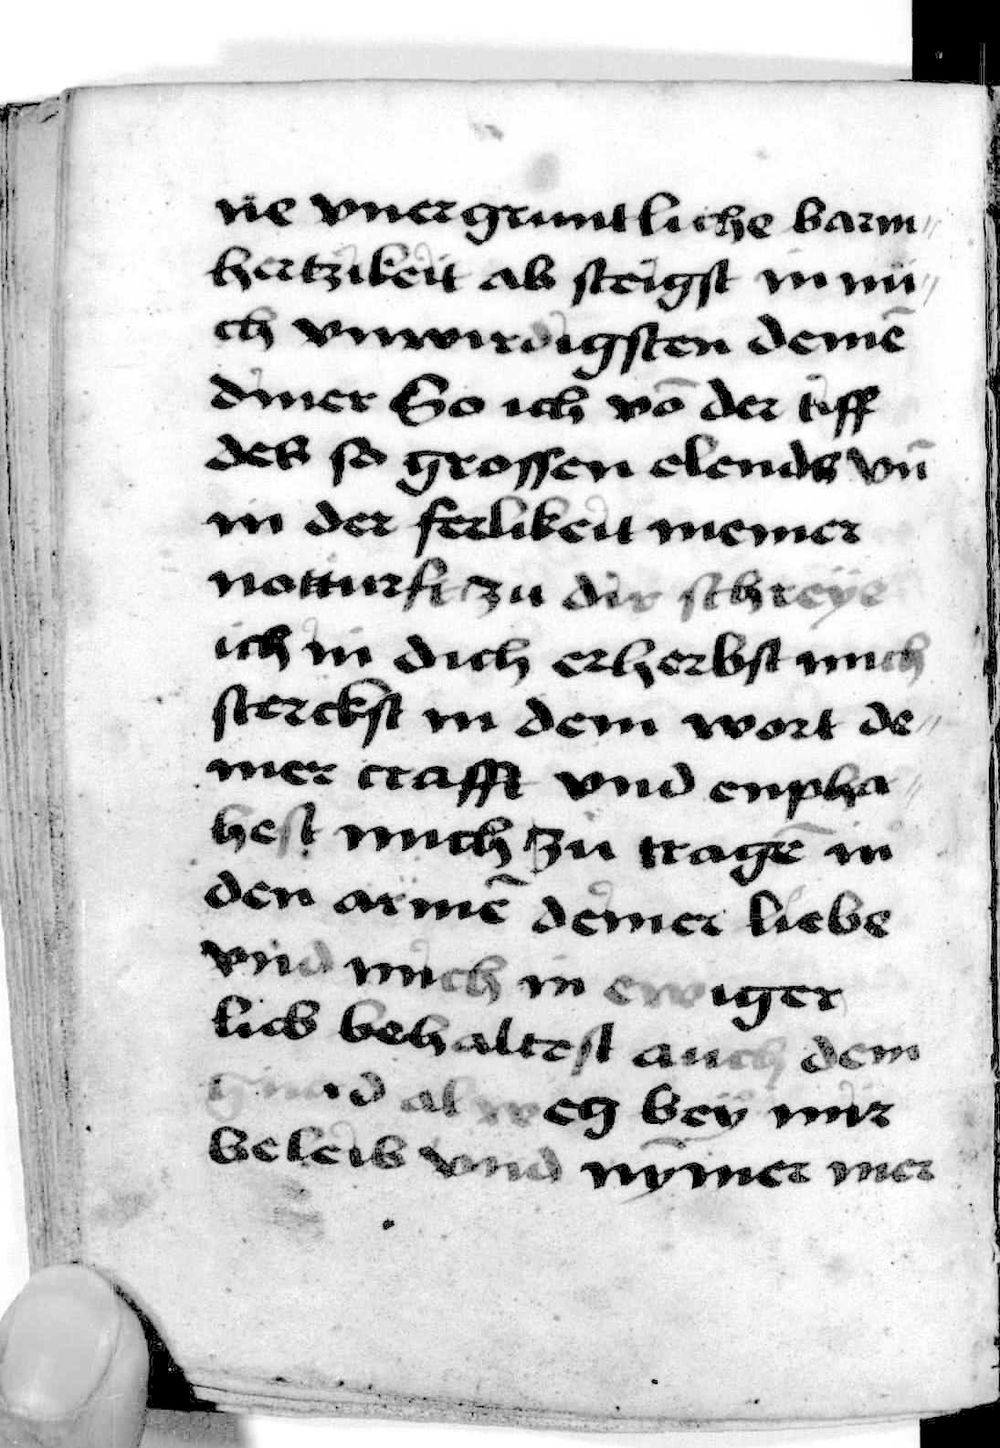 ne vnergruntliche barm〃
hertzikeit ab steigst in mi〃
ch vnwirdigsten deinē
diner So ich vō der tiff
des so grossen elends vn̄
in der ferlikeit meiner
notturft zu dir schreÿe
ich in dich erherbst mich
sterckst in dem wort de〃
iner crafft vnd enpha〃
hest mich zu tragē in
den armē deiner liebe
vnd mich in ewiger
lieb behaltest auch dein
gnad alweg beÿ mir
beleib vnd nȳmer mer